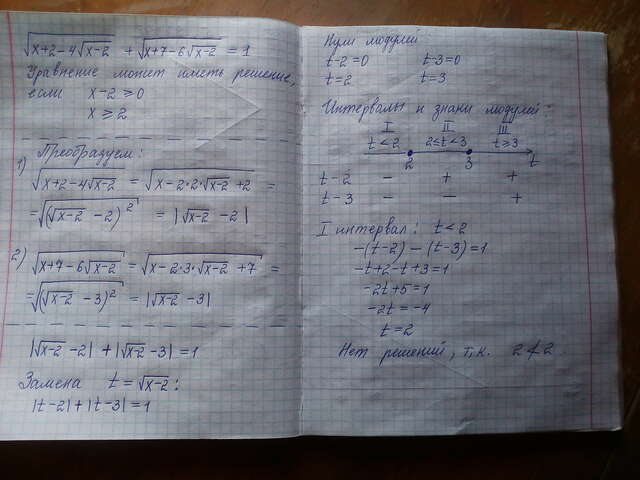 √(x+2-4√(x-2)) + √(x+7-6√(x-2)) = 1
Уравнение может иметь решение,
если x-2 ≥ 0
x ≥ 2
1) Преобразуем:
√(x+2-4√(x-2)) = √(x-2·2·√(x-2)+2) =
= √((√(x-2) -2)²) = |√(x-2) -2|
2) √(x+7-6√(x-2)) = √(x-2·3·√(x-2)+7) =
= √((√(x-2) -3)²) = |√(x-2) -3|
|√(x-2) -2| + |√(x-2) -3| = 1
Замена t = √(x-2):
|t-2|+|t-3|=1
Нули модулей
t-2=0 t-3=0
t=2 t=3
Интервалы и знаки модулей:
I II III
t<2 2≤t<3 t≥3
2 3 t
t-2 - + +
t-3 - - +
I интервал: t<2
-(t-2) -(t-3)=1
-t+2-t+3=1
-2t+5=1
-2t=-4
t=2
Нет решений, т.к. 2≮2